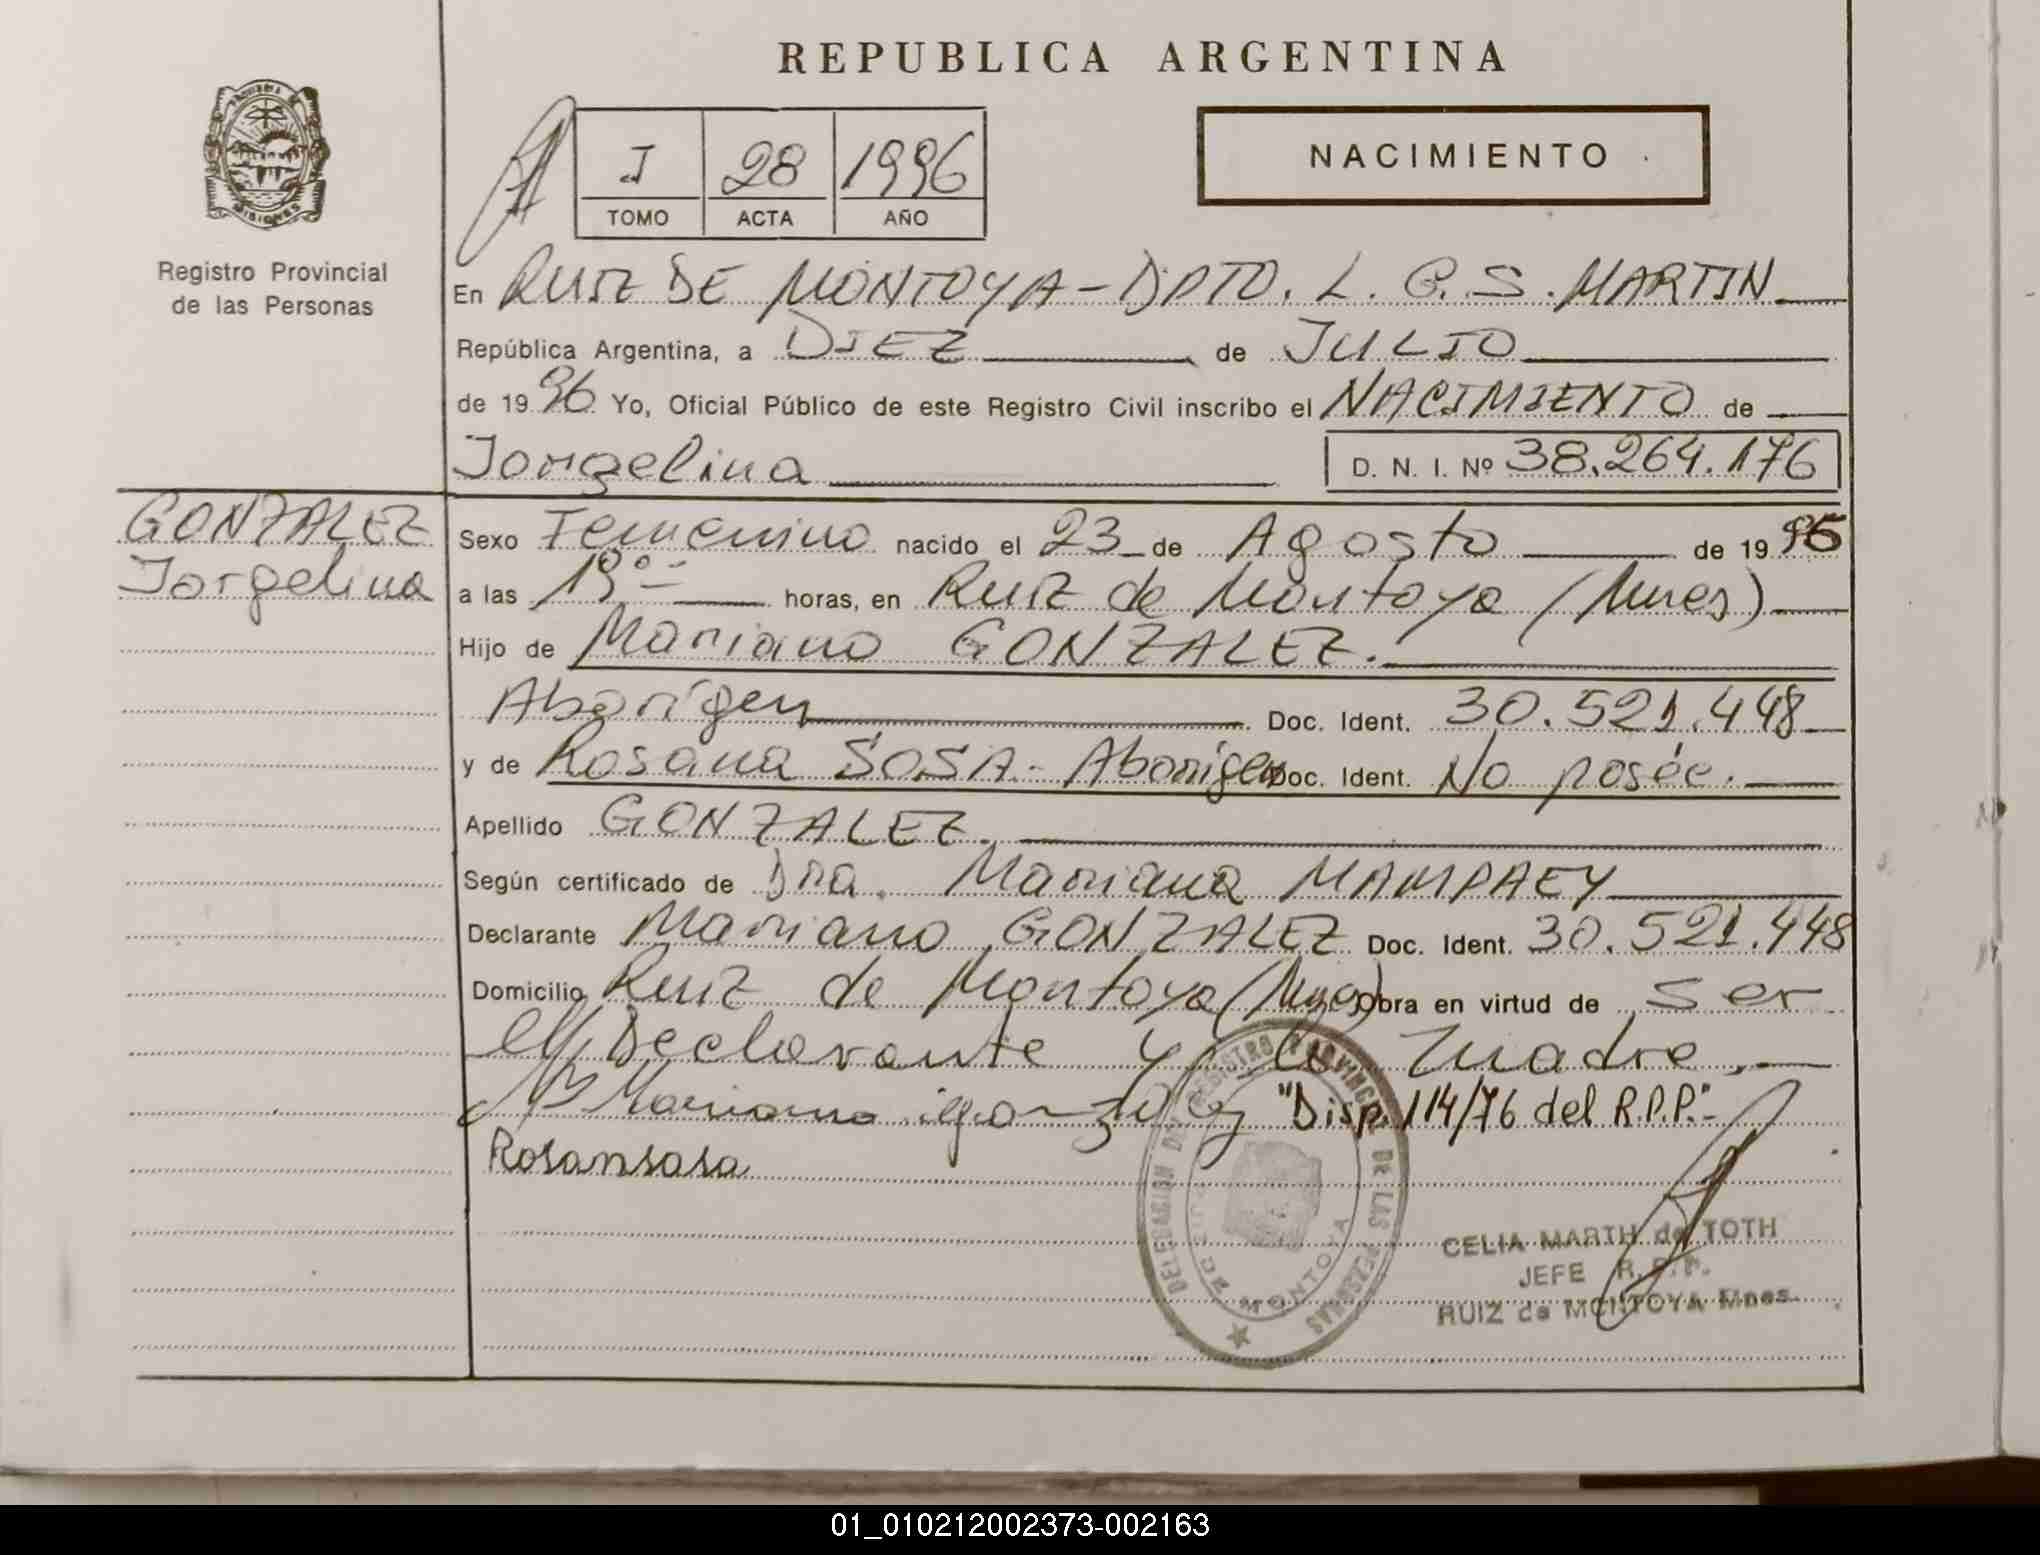 REPUBLICA ARGENTINA
MISIONES
Registro Provincial
de las Personas
I 28 1996
TOMO ACTA AÑO
NACIMIENTO
En RUIZ DE MONTOYA - DPTO. L. G. S. MARTIN
República Argentina, a DIEZ de JULIO
de 1996 Yo, Oficial Público de este Registro Civil inscribo el NACIMIENTO de
Jorgelina D. N. I. Nº 38.264.176
GONZALEZ
Jorgelina
Sexo Femenino nacido el 23 de Agosto de 1995
a las 19°° horas, en Ruiz de Montoya (Mnes)
Hijo de Mariano GONZALEZ.
Aborigen Doc. Ident. 30.521.448
y de Rosana SOSA - Aborigen Doc. Ident. No posée.
Apellido GONZALEZ.
Según certificado de Dra. Mariana MAMPAEY
Declarante Mariano GONZALEZ Doc. Ident. 30.521.448
Domicilio Ruiz de Montoya (Mnes) obra en virtud de ser
el Declarante y la madre.
Mariano gonzalez "Disp. 114/76 del R.P.P."-
Rosansosa
DELEGACION DEL REGISTRO PROVINCIAL DE LAS PERSONAS
RUIZ DE MONTOYA
CELIA MARTH de TOTH
JEFE R.P.P.
RUIZ de MONTOYA Mnes.
01_010212002373-002163